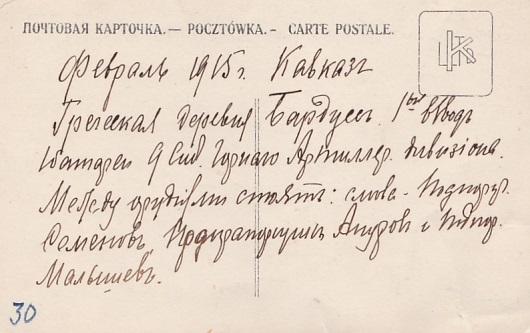 ПОЧТОВАЯ КАРТОЧКА.— POCZTÓWKA.- CARTE POSTALE.
Февраль 1915 г. Кавказъ
Греческая деревня Бардусъ. 1ый взводъ
батареи 9 Сиб. Горнаго Артиллер. дивизіона.
Между орудіями стоятъ: слева - Подпор.
Семеновъ, Прапорщикъ и Подпор.
Малышевъ.
30